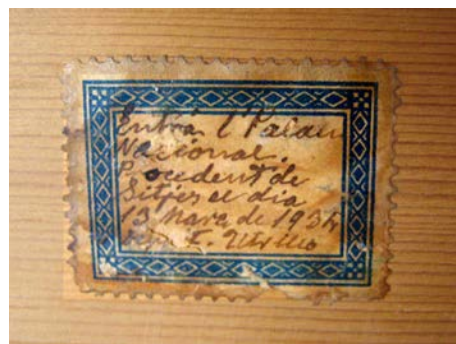 Entrá l'Palau
Nacional.
Procedent de
Sitjes el dia
13 Mars de 1934
E. Utrillo